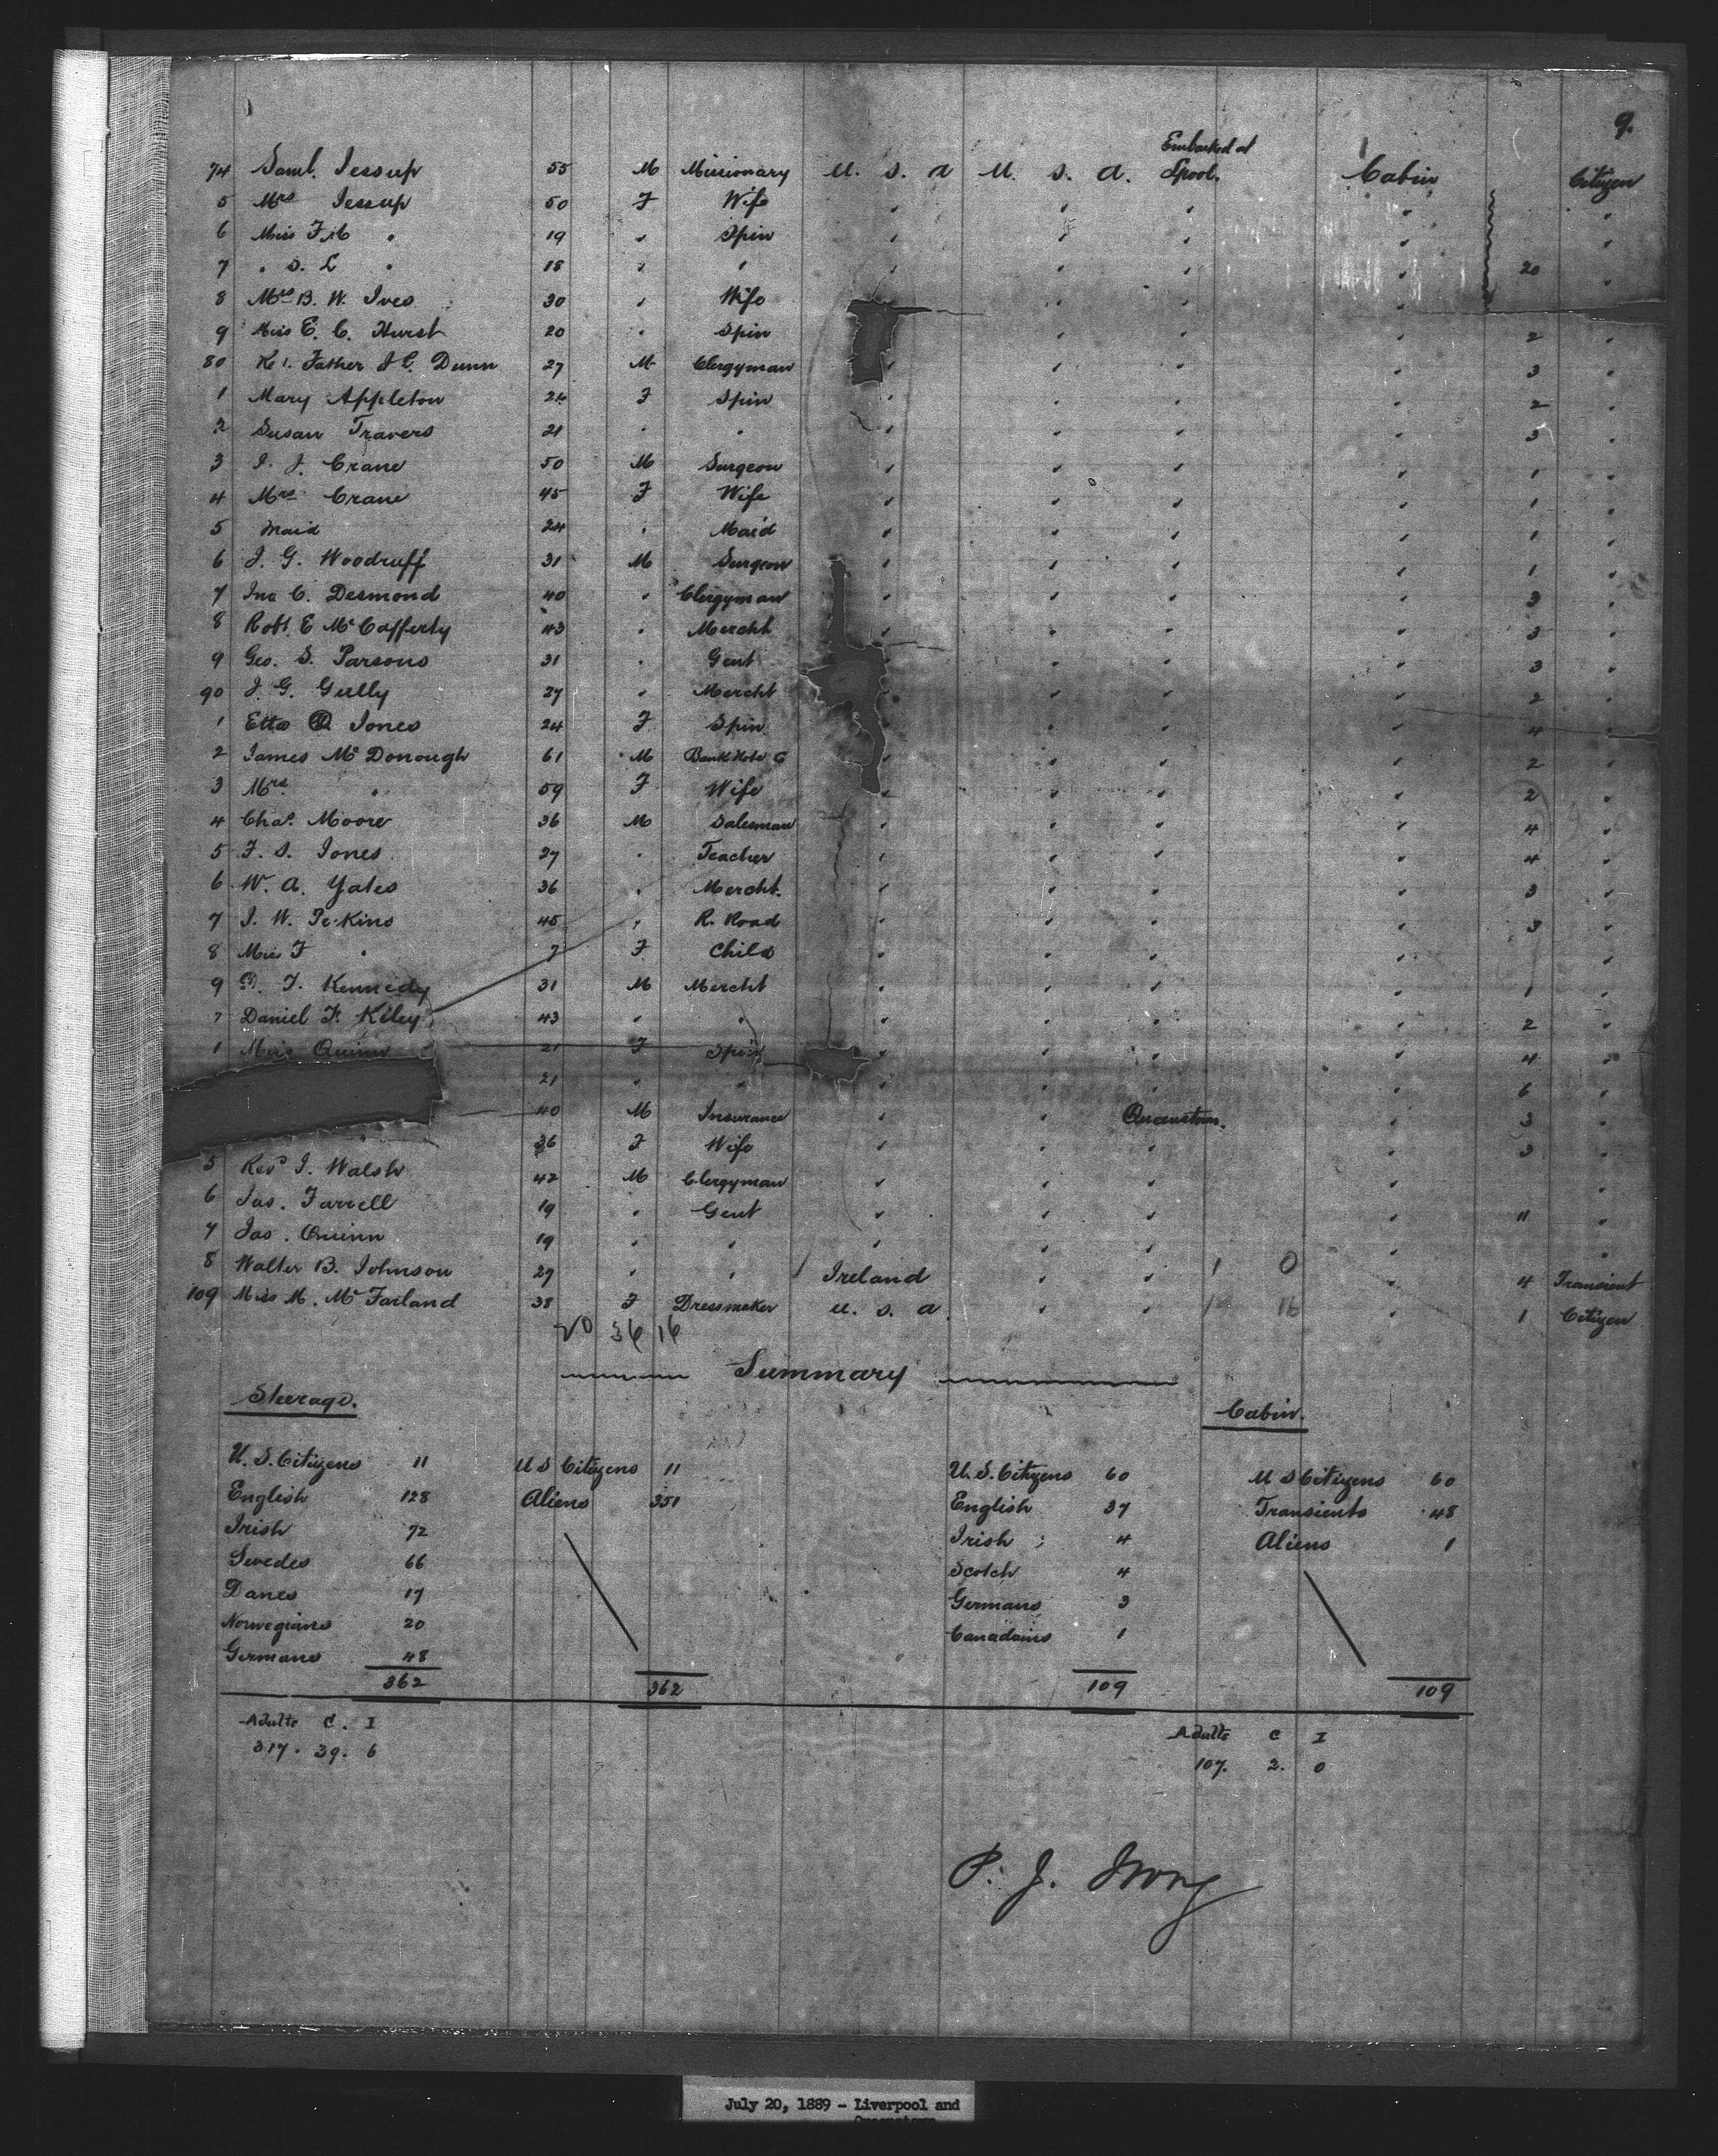 9.
74 Saml. Jessup 55 M Missionary U. S. A U. S. A. Embarked at Lpool. Cabin Citizen
5 Mrs Jessup 50 F Wife " " " " "
6 Miss F. " 19 " Spin " " " " "
7 " S. L " 18 " " " " " " 20 "
8 Mrs B. W. Ives 30 " Wife " " "
9 Miss E. C. Hurst 20 " Spin " " " 2 "
80 Father J C. Dunn 27 M Clergyman " " " " 3 "
1 Mary Appleton 24 F Spin " " " " 2 "
2 Susan Travers 21 " " " " " " 3 "
3 J. J. Crane 50 M Surgeon " " " " 1 "
4 Mrs Crane 45 F Wife " " " " 1 "
5 Maid 24 " Maid " " " " 1 "
6 J. G. Woodruff 31 M Surgeon " " " " 1 "
7 Jno C. Desmond 40 " Clergyman " " " " 3 "
8 Robt. E McCafferty 43 " Mercht " " " " 3 "
9 Geo. S. Parsons 31 " Gent " " " " 3 "
90 J. G. Gully 27 " Mercht " " " " 2 "
1 Etta Jones 24 F Spin " " " " 4 "
2 James McDonough 61 M Bank Note C " " " " 2 "
3 Mrs " 59 F Wife " " " " 2 "
4 Chas. Moore 36 M Salesman " " " " 4 "
5 F. S. Jones 27 " Teacher " " " " 4 "
6 W. A. Yates 36 " Mercht. " " " " 3 "
7 J. W. Perkins 45 " R. Road " " " " 3 "
8 Miss F " 7 F Child " " " " "
9 F. Kennedy 31 M Mercht " " " " 1 "
Daniel F. Kiley 43 " " " " " " 2 "
1 Miss Quinn 21 F Spin " " " " 4 "
21 " " " " " " 6 "
40 M Insurance " " Queenstown. " 3 "
36 F Wife " " " " 3 "
5 Revd J. Walsh 42 M Clergyman " " " " "
6 Jas. Farrell 19 " Gent " " " " 11 "
7 Jas. Quinn 19 " " " " " " "
8 Walter B. Johnson 29 " " Ireland " " 1 0 " 4 Transient
109 Miss M. McFarland 38 F Dressmaker U. S. A. " " 16 " 1 Citizen
20 36 16
Summary
Steerage. Cabin.
U. S. Citizens 11 U S Citizens 11 U. S. Citizens 60 U S Citizens 60
English 128 Aliens 351 English 37 Transients 48
Irish 72 Irish 4 Aliens 1
Swedes 66 Scotch 4
Danes 17 Germans 3
Norwegians 20 Canadains 1
Germans 48
362 362 109 109
Adults C. I Adults C I
317. 39. 6 107. 2. 0
P. J.
July 20, 1889 - Liverpool and
Queenstown